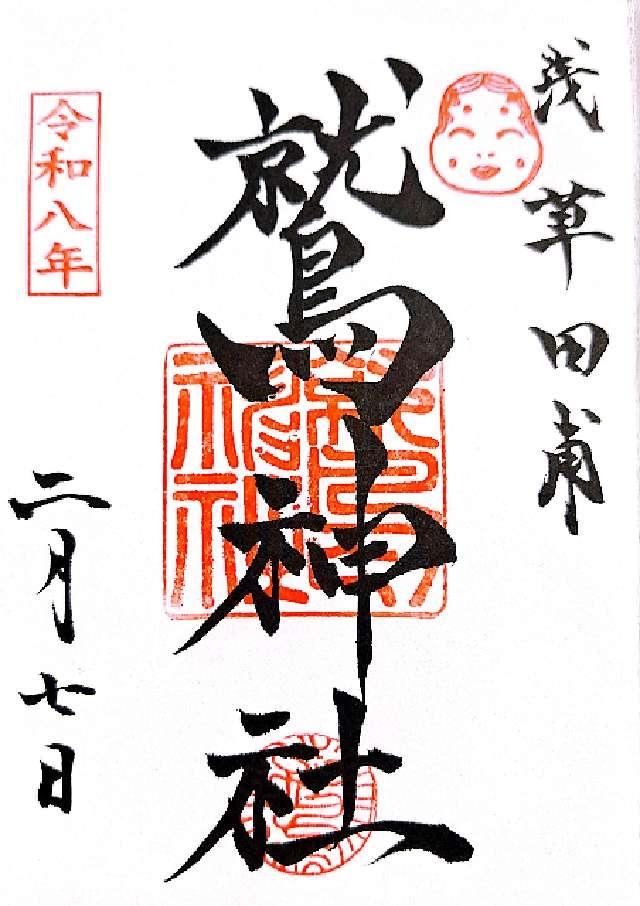 浅草田甫
鷲神社
鷲神社
令和八年
二月七日